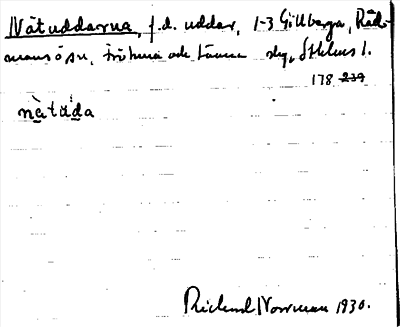 Nätuddarna, f.d. uddar, 1-3 Gillberga, Råd-
mansö sn, Frötuna och Länna skg, Sthlms l.
178 239
nä̀tùd̀a
Richard Norrman 1930.